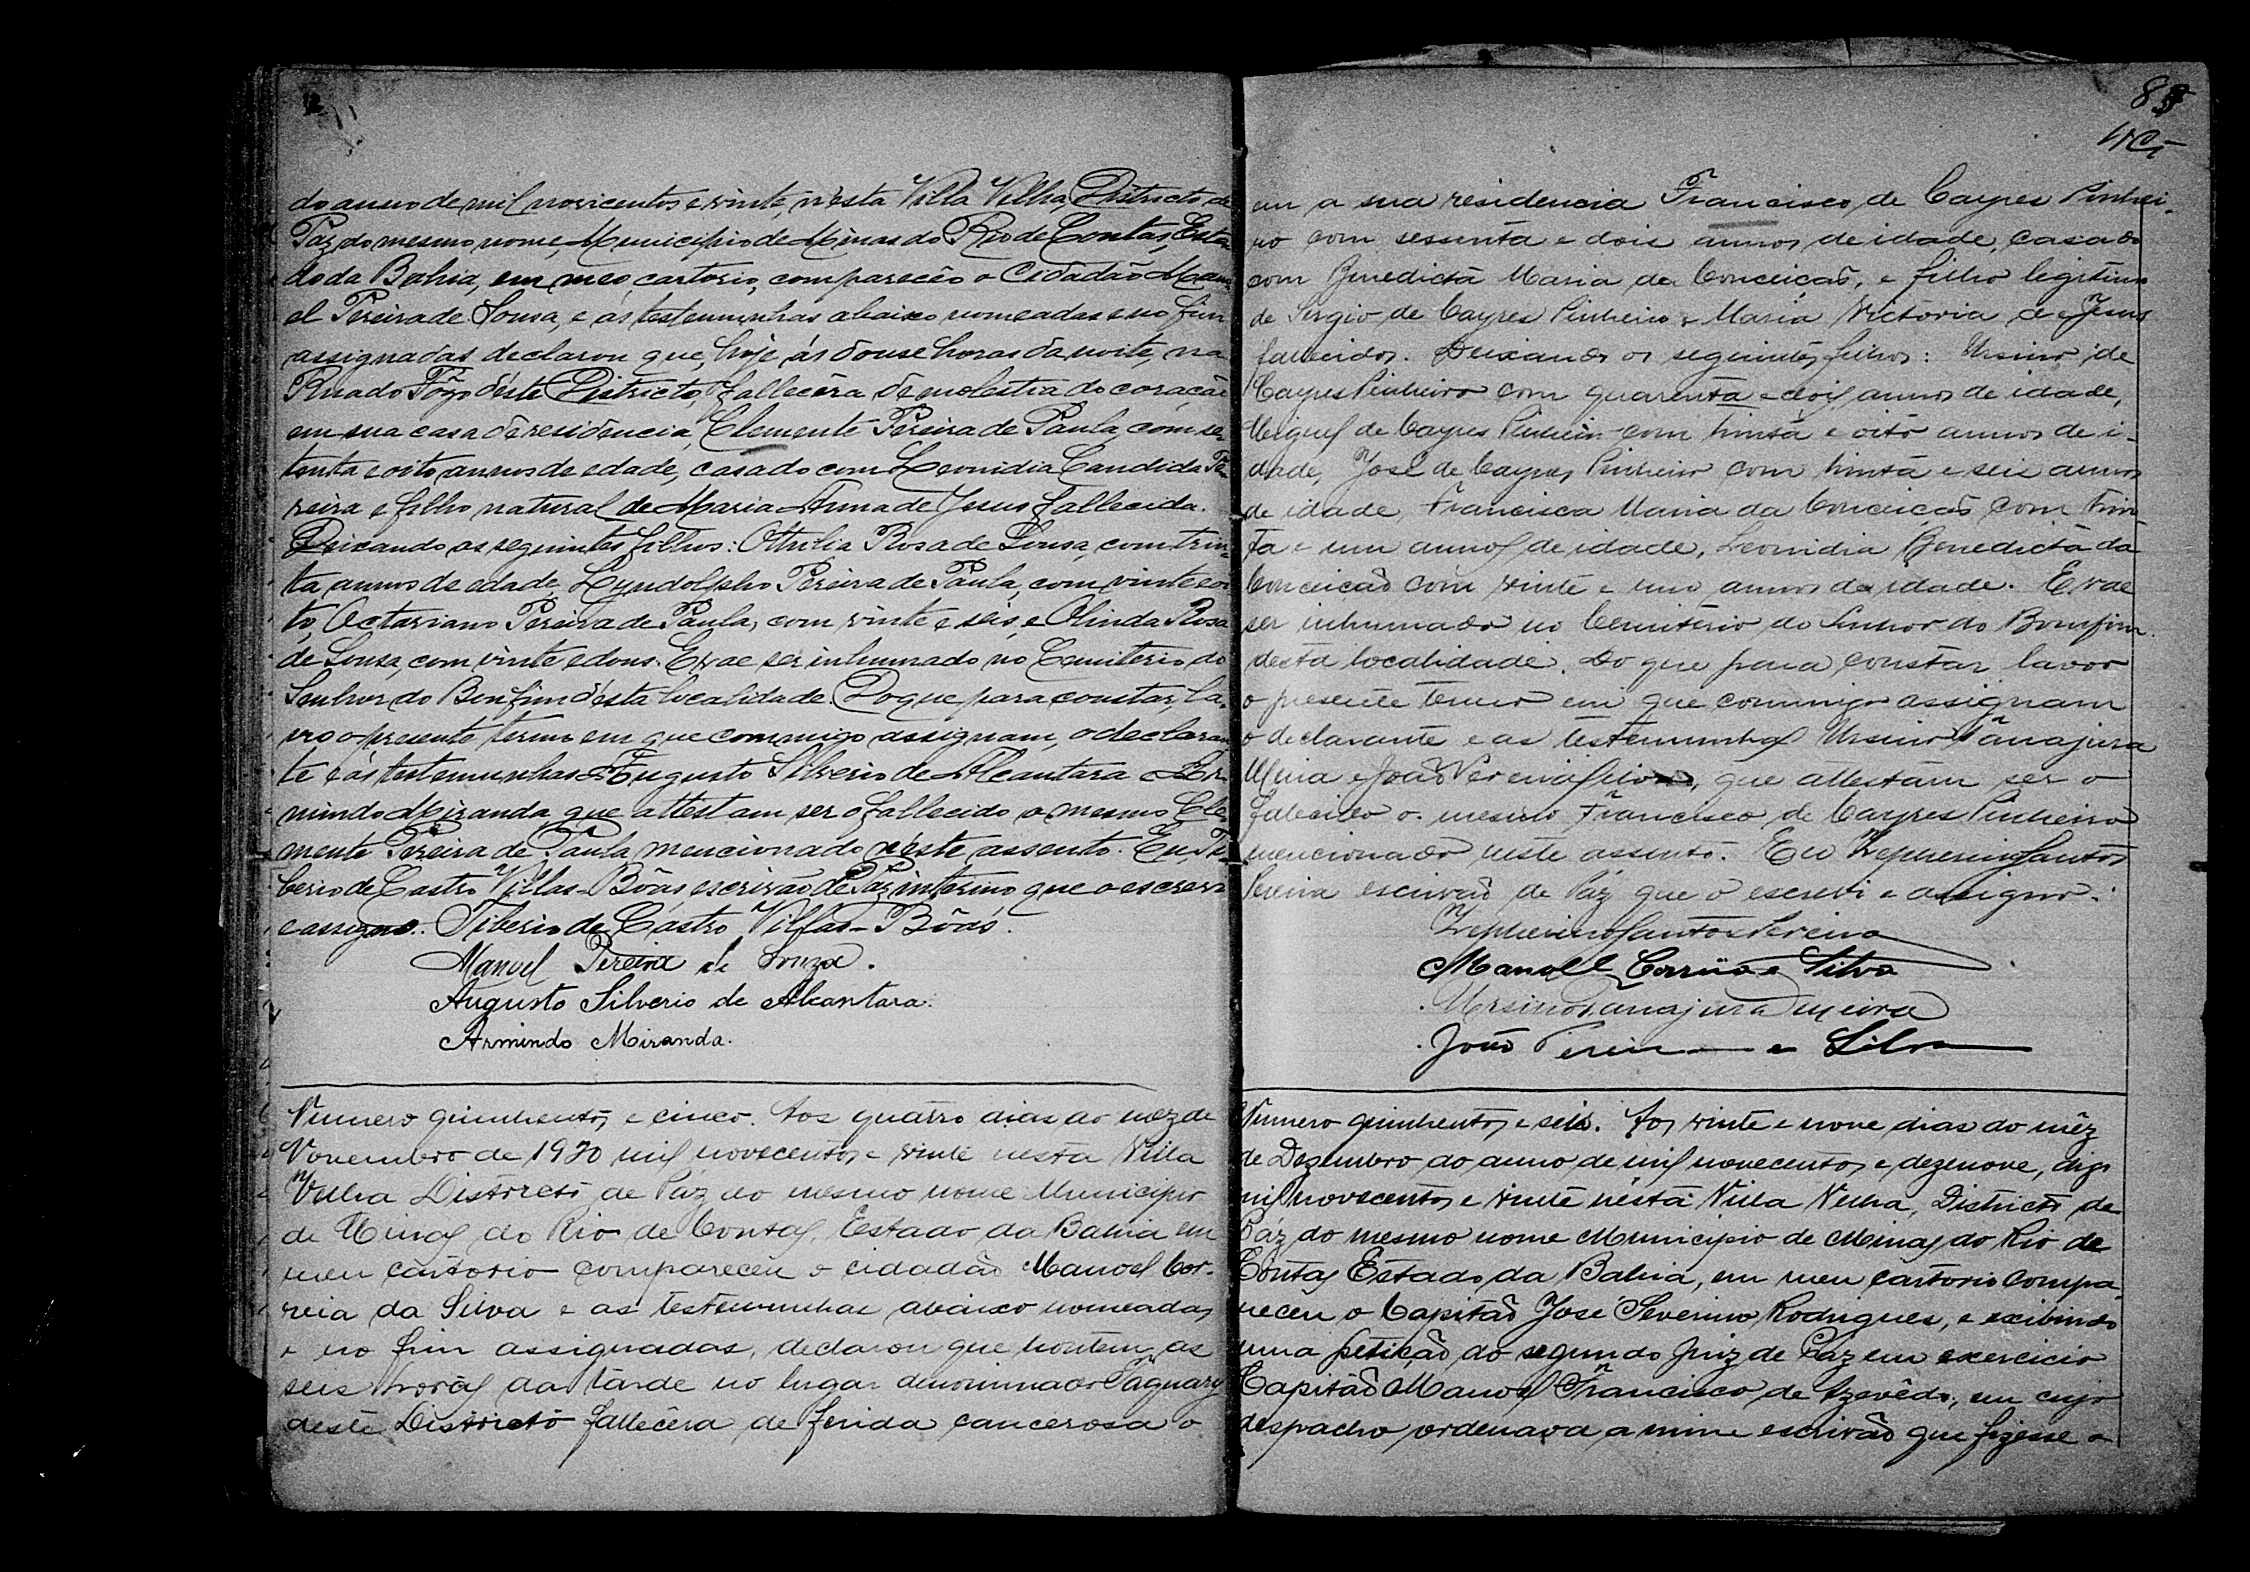 do anno de mil novicentos e vinte, n'esta Villa Velha, Districto de
Paz do mesmo nome, Municipio de Minas do Rio de Contas, Esta
do da Bahia, em meo cartorio, compareceo o Cidadão Manu
el Pereira de Sousa, e ás testemunhas abaixo nomeadas e no fim
assignadas declarou que, hoje, ás douse horas da noite, na
Rua do Fôgo d'este Districto, fallecêra de molestia do coração
em sua casa de residencia, Clemente Pereira de Paula, com se
tenta e oito annos de edade, casado com Leonidia Candida Pe
reira e filho natural de Maria Anna de Jesus fallecida.
Deixando os seguintes filhos: Othilia Rosa de Sousa, com trin
ta annos de edade, Lyndolpho Pereira de Paula, com vinte e oi
to, Octaviano Pereira de Paula, com vinte e seis, e Olinda Rosa
de Sousa, com vinte e dous. E vae ser inhumado no Cemiterio do
Senhor do Bonfim d'esta localidade. Do que, para constar, la-
vro o presente termo em que commigo assignam, o declaran
te e ás testemunhas Augusto Silverio de Alcantara e Ar
mindo Miranda que attestam ser o fallecido o mesmo Cle
mente Pereira de Paula mencionado n'este assento. Eu, Ti
berio de Castro Villas-Bôas, escrivão de Paz interino, que o escrevi
e assigno. Tiberio de Castro Villas-Bôas.
Manoel Pereira de Souza.
Augusto Silverio de Alcantara.
Armindo Miranda.
Numero quinhentos e cinco. Aos quatro dias do mez de
Novembro de 1920 mil novecentos e vinte nesta Villa
Velha Districto de Paz do mesmo nome Municipio
de Minas do Rio de Contas, Estado da Bahia em
meu cartorio compareceu o cidadão Manoel Cor-
reia da Silva e as testemunhas abaixo nomeadas,
e no fim assignadas, declarou que hontem, as
seis horas da tarde no lugar denominado Taquary
deste Districto fallecêra de ferida cancerosa o
88
em a sua residencia Francisco de Cayres Pinhei-
ro com sessenta e dois annos de idade, casado
com Benedicta Maria da Conceição, e filho legitimo
de Sergio de Cayres Pinheiro e Maria Victoria de Jesus
falecidos. Deixando os seguintes filhos: Ursino de
Cayres Pinheiro com quarenta e dois annos de idade,
Miguel de Cayres Pinheiro com trinta e oito annos de i-
dade, José de Cayres Pinheiro com trinta e seis annos
de idade, Francisca Maria da Conceição com trin
ta e um annos de idade, Leonidia Benedicta da
Conceição com vinte e um annos de idade. E vae
ser inhumado no Cemiterio do Senhor do Bomfim
desta localidade. Do que para constar lavro
o presente termo em que commigo assignam
o declarante e as testemunhas Ursino Tanajura
Meira e João Pereira Silva, que attestam ser o
falecido o mesmo Francisco de Cayres Pinheiro
mencionado neste assento. Eu Zepherino Santos
Pereira escrivão de Paz que o escrevi e assigno.
Zepherino Santos Pereira
Manoel Corrêia e Silva
Ursino Tanajura Meira
João Pereira e Silva
Numero quinhentos e seis. Aos vinte e nove dias do mêz
de Dezembro do anno de mil novecentos e dezenove, digo
mil novecentos e vinte nésta Villa Velha, Districto de
Páz do mesmo nome Municipio de Minas do Rio de
Contas Estado da Bahia, em meu cartorio compa
receu o Capitão José Severino Rodrigues, e exibindo
uma petição do segundo Juiz de Paz em exercicio
Capitão Manoel Francisco de Azevêdo, em cujo
despacho ordenava a mim escrivão que fizesse o